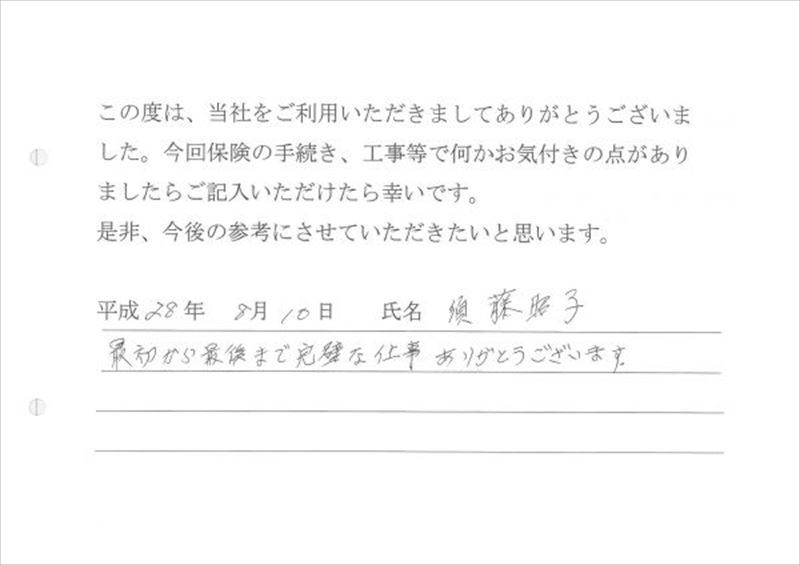 この度は、当社をご利用いただきましてありがとうございま
した。今回保険の手続き、工事等で何かお気付きの点があり
ましたらご記入いただけたら幸いです。
是非、今後の参考にさせていただきたいと思います。
平成28年 8月10日 氏名 須藤昭子
最初から最後まで完璧な仕事ありがとうございます